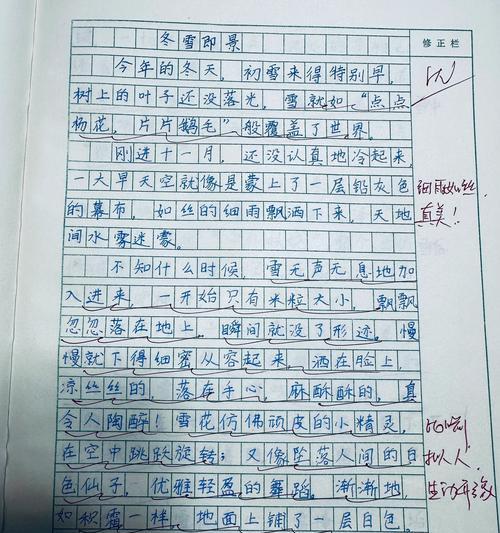 冬雪即景
修正栏
今年的冬天，初雪来得特别早，
树上的叶子还没落光，雪就如“点点
杨花，片片鹅毛”般覆盖了世界。
刚进十一月，还没认真地冷起来，
一大早天空就像是蒙上了一层铅灰色
细雨如丝，
的幕布，如丝的细雨飘洒下来，天地
真美！
间水雾迷蒙。
不知什么时候，雪无声无息地加
入进来，一开始只有米粒大小，飘飘
忽忽落在地上，瞬间就没了形迹。慢
慢就下得细密从容起来，洒在脸上，
凉丝丝的，落在手心，麻酥酥的，真
令人陶醉！雪花仿佛顽皮的小精灵，
比喻，
在空中跳跃旋转；又像坠落人间的白
拟人，
色仙子，优雅轻盈的舞蹈。渐渐地，
生动形象
如积霜一样，地面上铺了一层白色